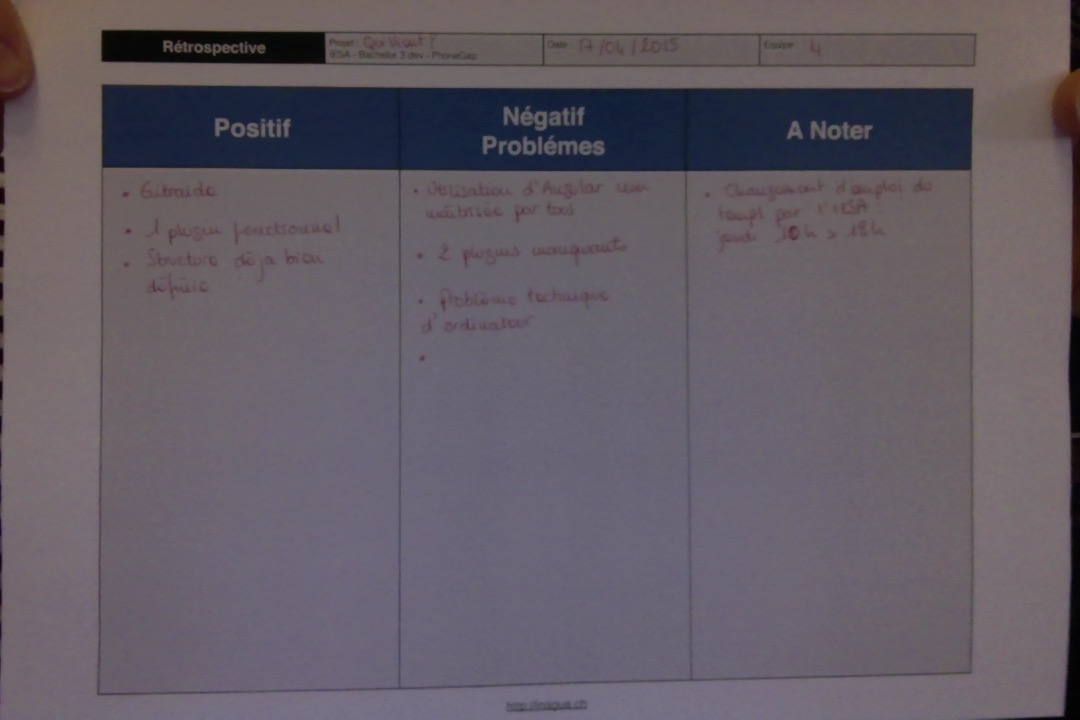 Rétrospective
Projet : Qui Vient ?
IESA - Bachelor 3 dev - PhoneGap
Date : 17/04/2015
Equipe : 4
Positif
Négatif
Problémes
A Noter
• Entraide
• 1 plugin fonctionnel
• Structure déja bien
définie
• Utilisation d'Angular non
maîtrisée par tous
• 2 plugins manquants
• Problème technique
d'ordinateur
•
• Changement d'emploi du
temps par l'IESA :
jeudi 10h > 18h